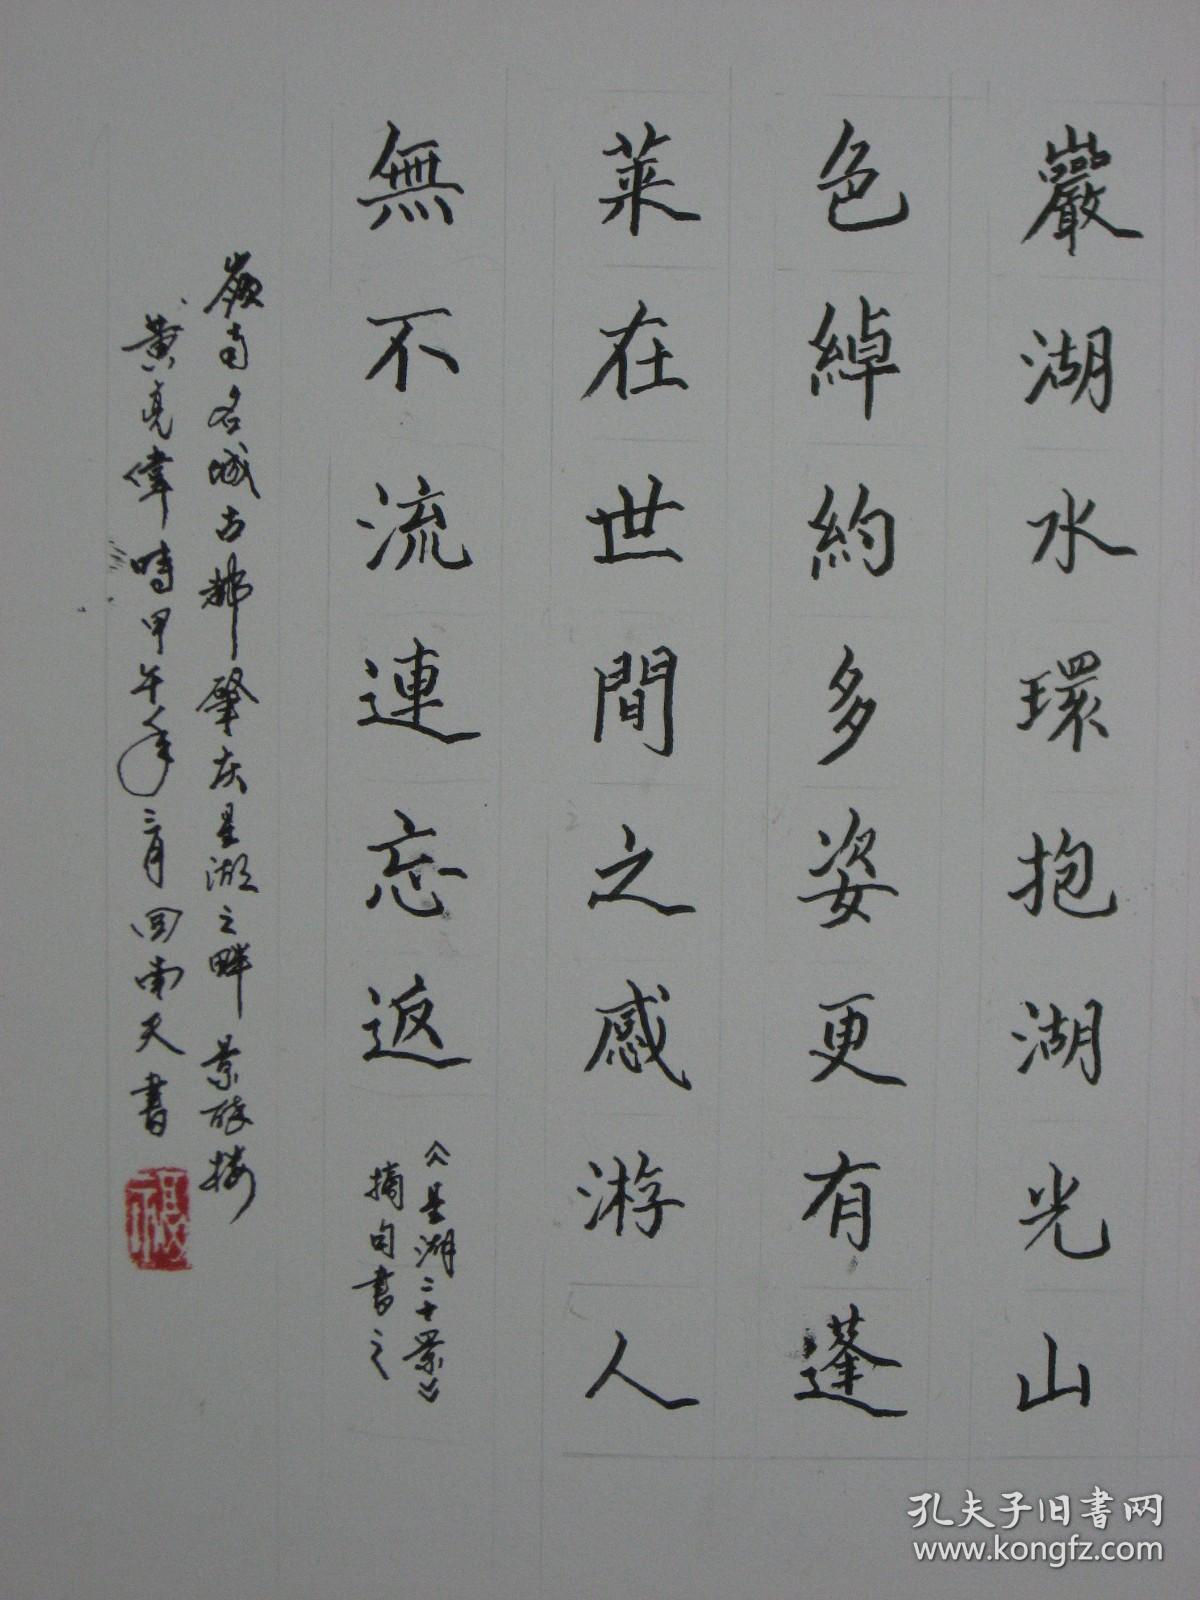 巖湖水環抱湖光山
色綽約多姿更有蓬
萊在世間之感游人
無不流連忘返
《星湖二十景》
摘句書之
嶺南名城古都肇庆星湖之畔 景醉楼
黄亮偉時甲午年三月回南天書
孔夫子旧书网
www.kongfz.com